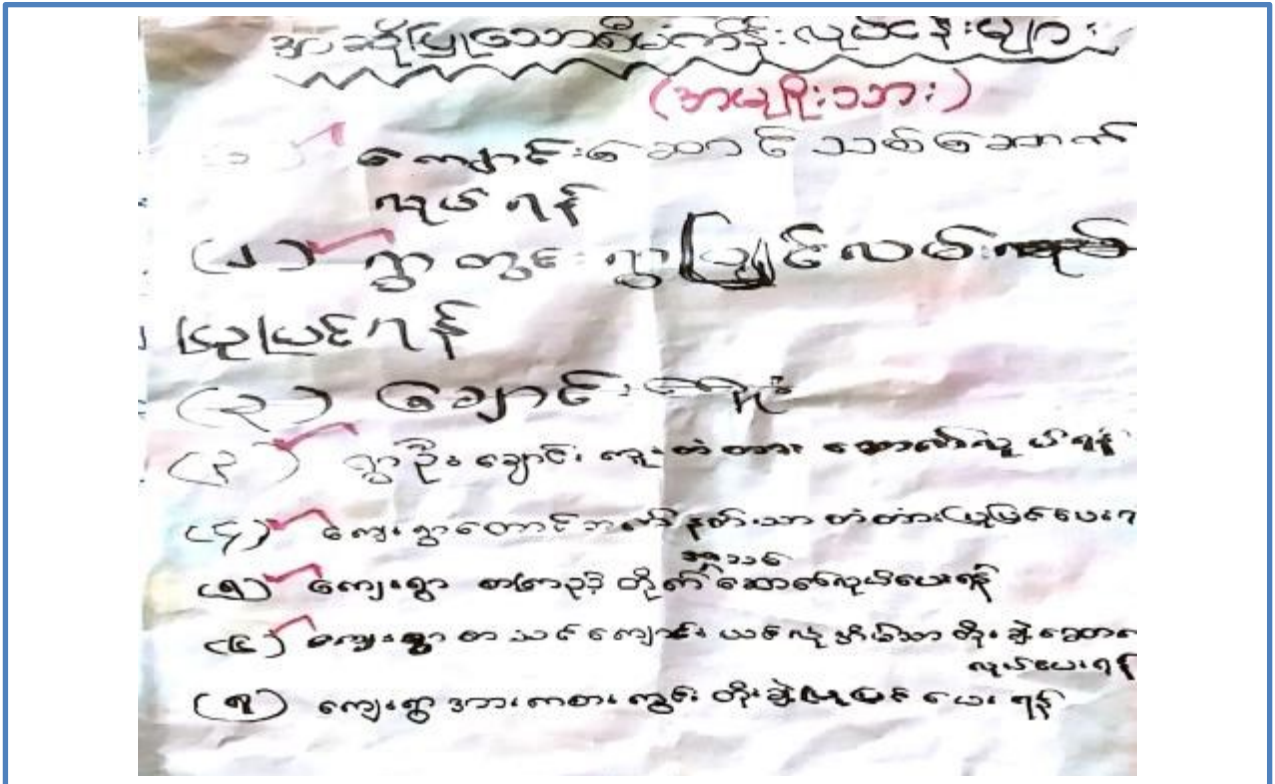 အဆိုပြုသောစီမံကိန်းလုပ်ငန်းများ
(အမျိုးသား)
(၁) ကျောင်းဆောင်သစ်ဆောက်
လုပ်ရန်
(၂) ရွာတွင်းရွာပြင်လမ်း
ပြုပြင်ရန်
(၃) ချောင်း
(၃) ရွာဦးချောင်းကူးတံတားဆောက်လုပ်ရန်
(၄) ကျေးရွာတောင်ဘက် တံတားပြုပြင်ပေး
အသစ်
(၅) ကျေးရွာ စာကြည့်တိုက် ဆောက်လုပ်ပေးရန်
(၆) ကျေးရွာ စာသင်ကျောင်း တိုးချဲ့ဆောက်
လုပ်ပေးရန်
(၇) ကျေးရွာအားကစားကွင်း တိုးချဲ့ ပေးရန်